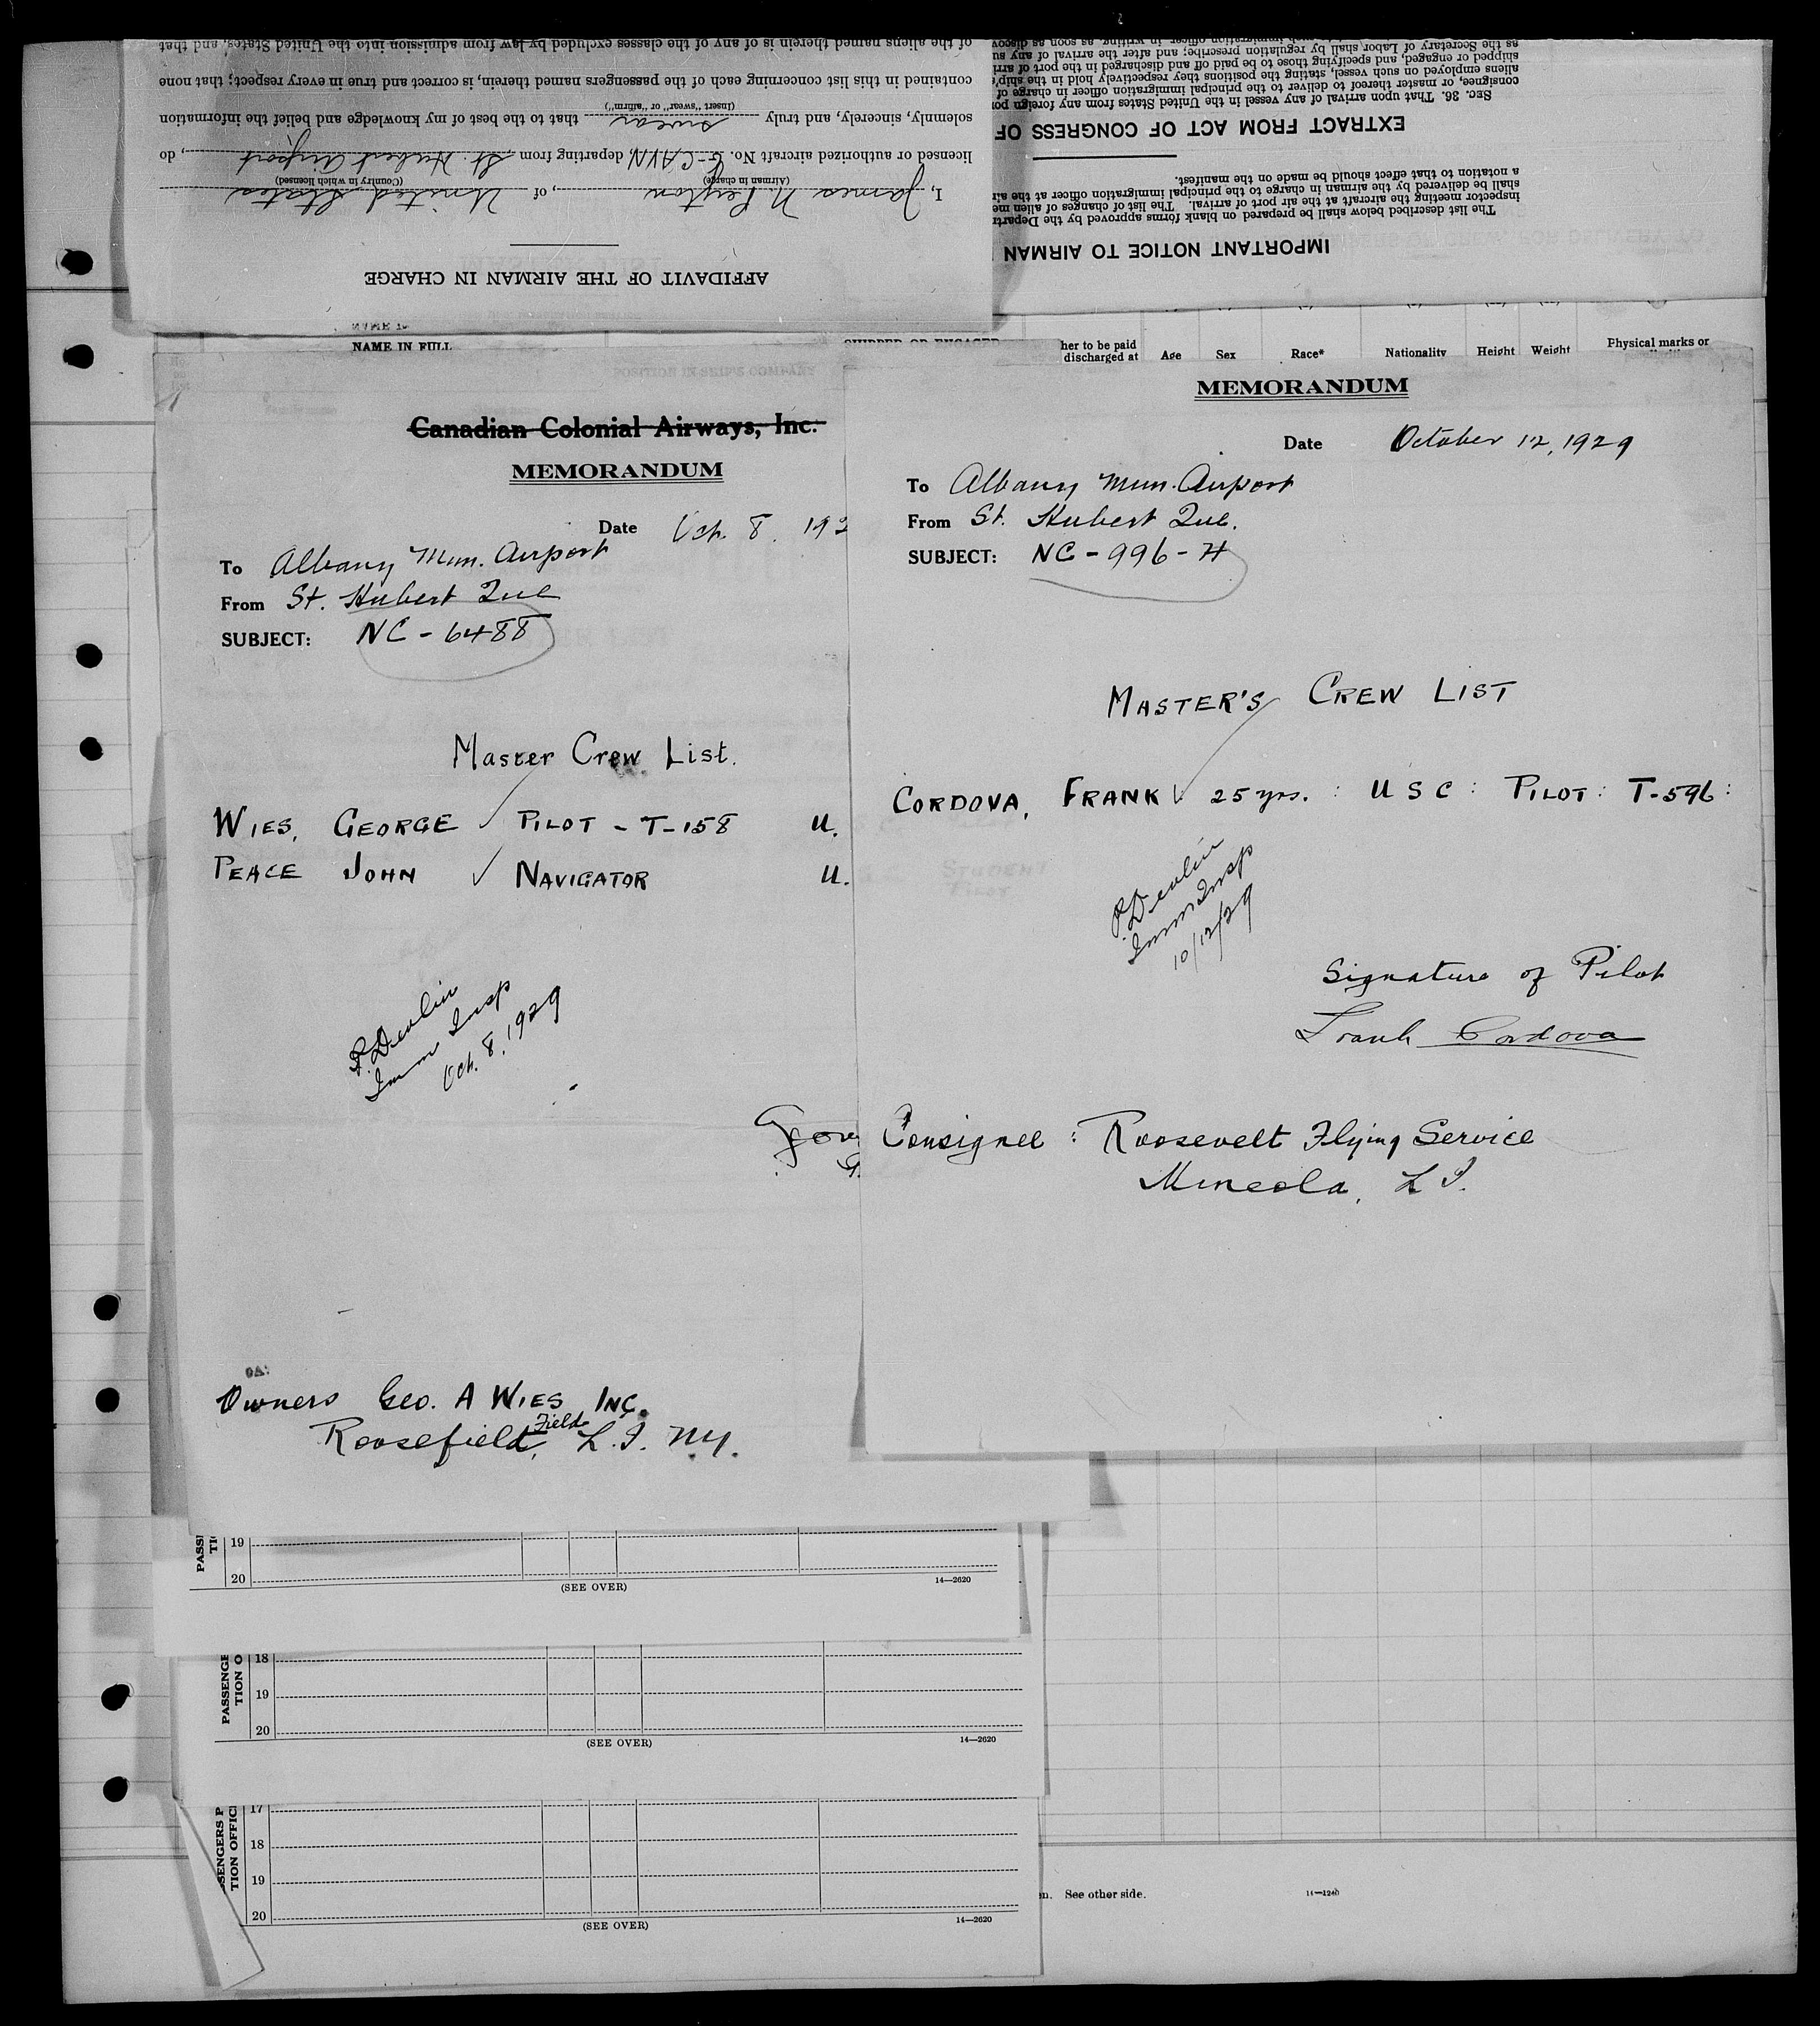 of the aliens named therein is of any of the classes excluded by law from admission into the United States, and that
contained in this list concerning each of the passengers named therein, is correct and true in every respect; that none
(Insert "swear" or "affirm")
solemnly, sincerely, and truly swear that to the best of my knowledge and belief the information
licensed or authorized aircraft No. G-CAVN, departing from St. Hubert Airport, do
(Airman in charge) (Country in which licensed)
I, James N. Peyton, of United States
AFFIDAVIT OF THE AIRMAN IN CHARGE
as the Secretary of Labor shall by regulation prescribe; and after the arrival of any
shipped or engaged, and specifying those to be paid off and discharged in the port of
aliens employed on such vessel, stating the positions they respectively hold in the ship's
consignee, or master thereof to deliver to the principal immigration officer in charge of
SEC. 36. That upon arrival of any vessel in the United States from any foreign
EXTRACT FROM ACT OF CONGRESS OF
a notation to that effect should be made on the manifest.
shall be delivered by the airman in charge to the principal immigration officer at the
inspector meeting the aircraft at the air port of arrival. The list of changes of alien
The list described below shall be prepared on blank forms approved by the
IMPORTANT NOTICE TO AIRMAN
NAME IN FULL
her to be paid
discharged at Age Sex Race* Nationality Height Weight Physical marks or
POSITION IN SHIP'S COMPANY
Canadian Colonial Airways, Inc.
MEMORANDUM
Date Oct. 8, 192
To Albany Mun. Airport
From St. Hubert Que
SUBJECT: NC-6488
Master Crew List.
WIES, GEORGE ✓ PILOT - T-158 U.
PEACE JOHN ✓ NAVIGATOR U.
P. Devlin
Imm Insp
Oct. 8, 1929
Geor
Owners Geo. A WIES, INC.
Roosefield, Field L.I. NY.
MEMORANDUM
Date October 12, 1929
To Albany Mun. Airport
From St. Hubert Que.
SUBJECT: NC-996-H
MASTER'S CREW LIST
CORDOVA, FRANK ✓ 25 yrs. : USC : PILOT : T-596 :
STUDENT
PILOT
P. Devlin
Imm Insp
10/12/29
Signature of Pilot
Frank Cordova
Consignee : Roosevelt Flying Service
Mineola, L I.
19
20
(SEE OVER) 14—2620
PASSENGE
TION O
18
19
20
(SEE OVER) 14—2620
SENGERS P
TION OFFIC
17
18
19
20
(SEE OVER) 14—2620
See other side. 14—1240